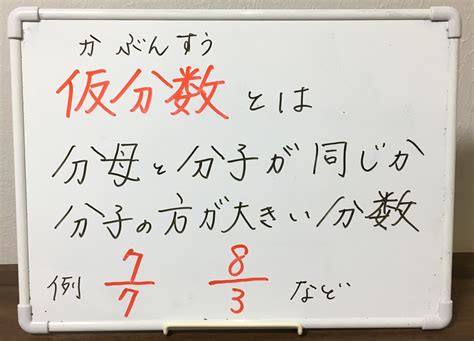 かぶんすう
仮分数とは
分母と分子が同じか
分子の方が大きい分数
例 7/7 8/3 など